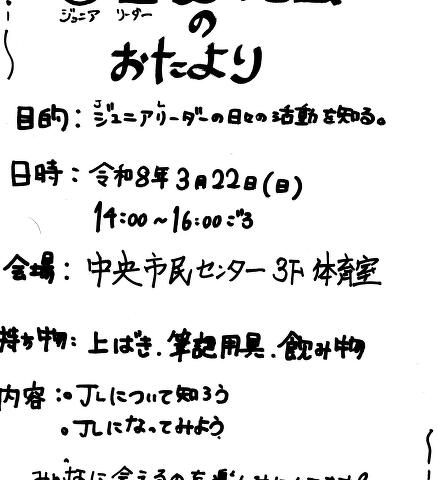 ジュニア リーダー
の
おたより
目的：ジュニアリーダーの日々の活動を知る。
日時：令和8年3月22日(日)
14:00～16:00ごろ
会場：中央市民センター 3F 体育室
持ち物：上ばき.筆記用具.飲み物
内容：。JLについて知ろう
。JLになってみよう
みんなに会えるのを楽しみに